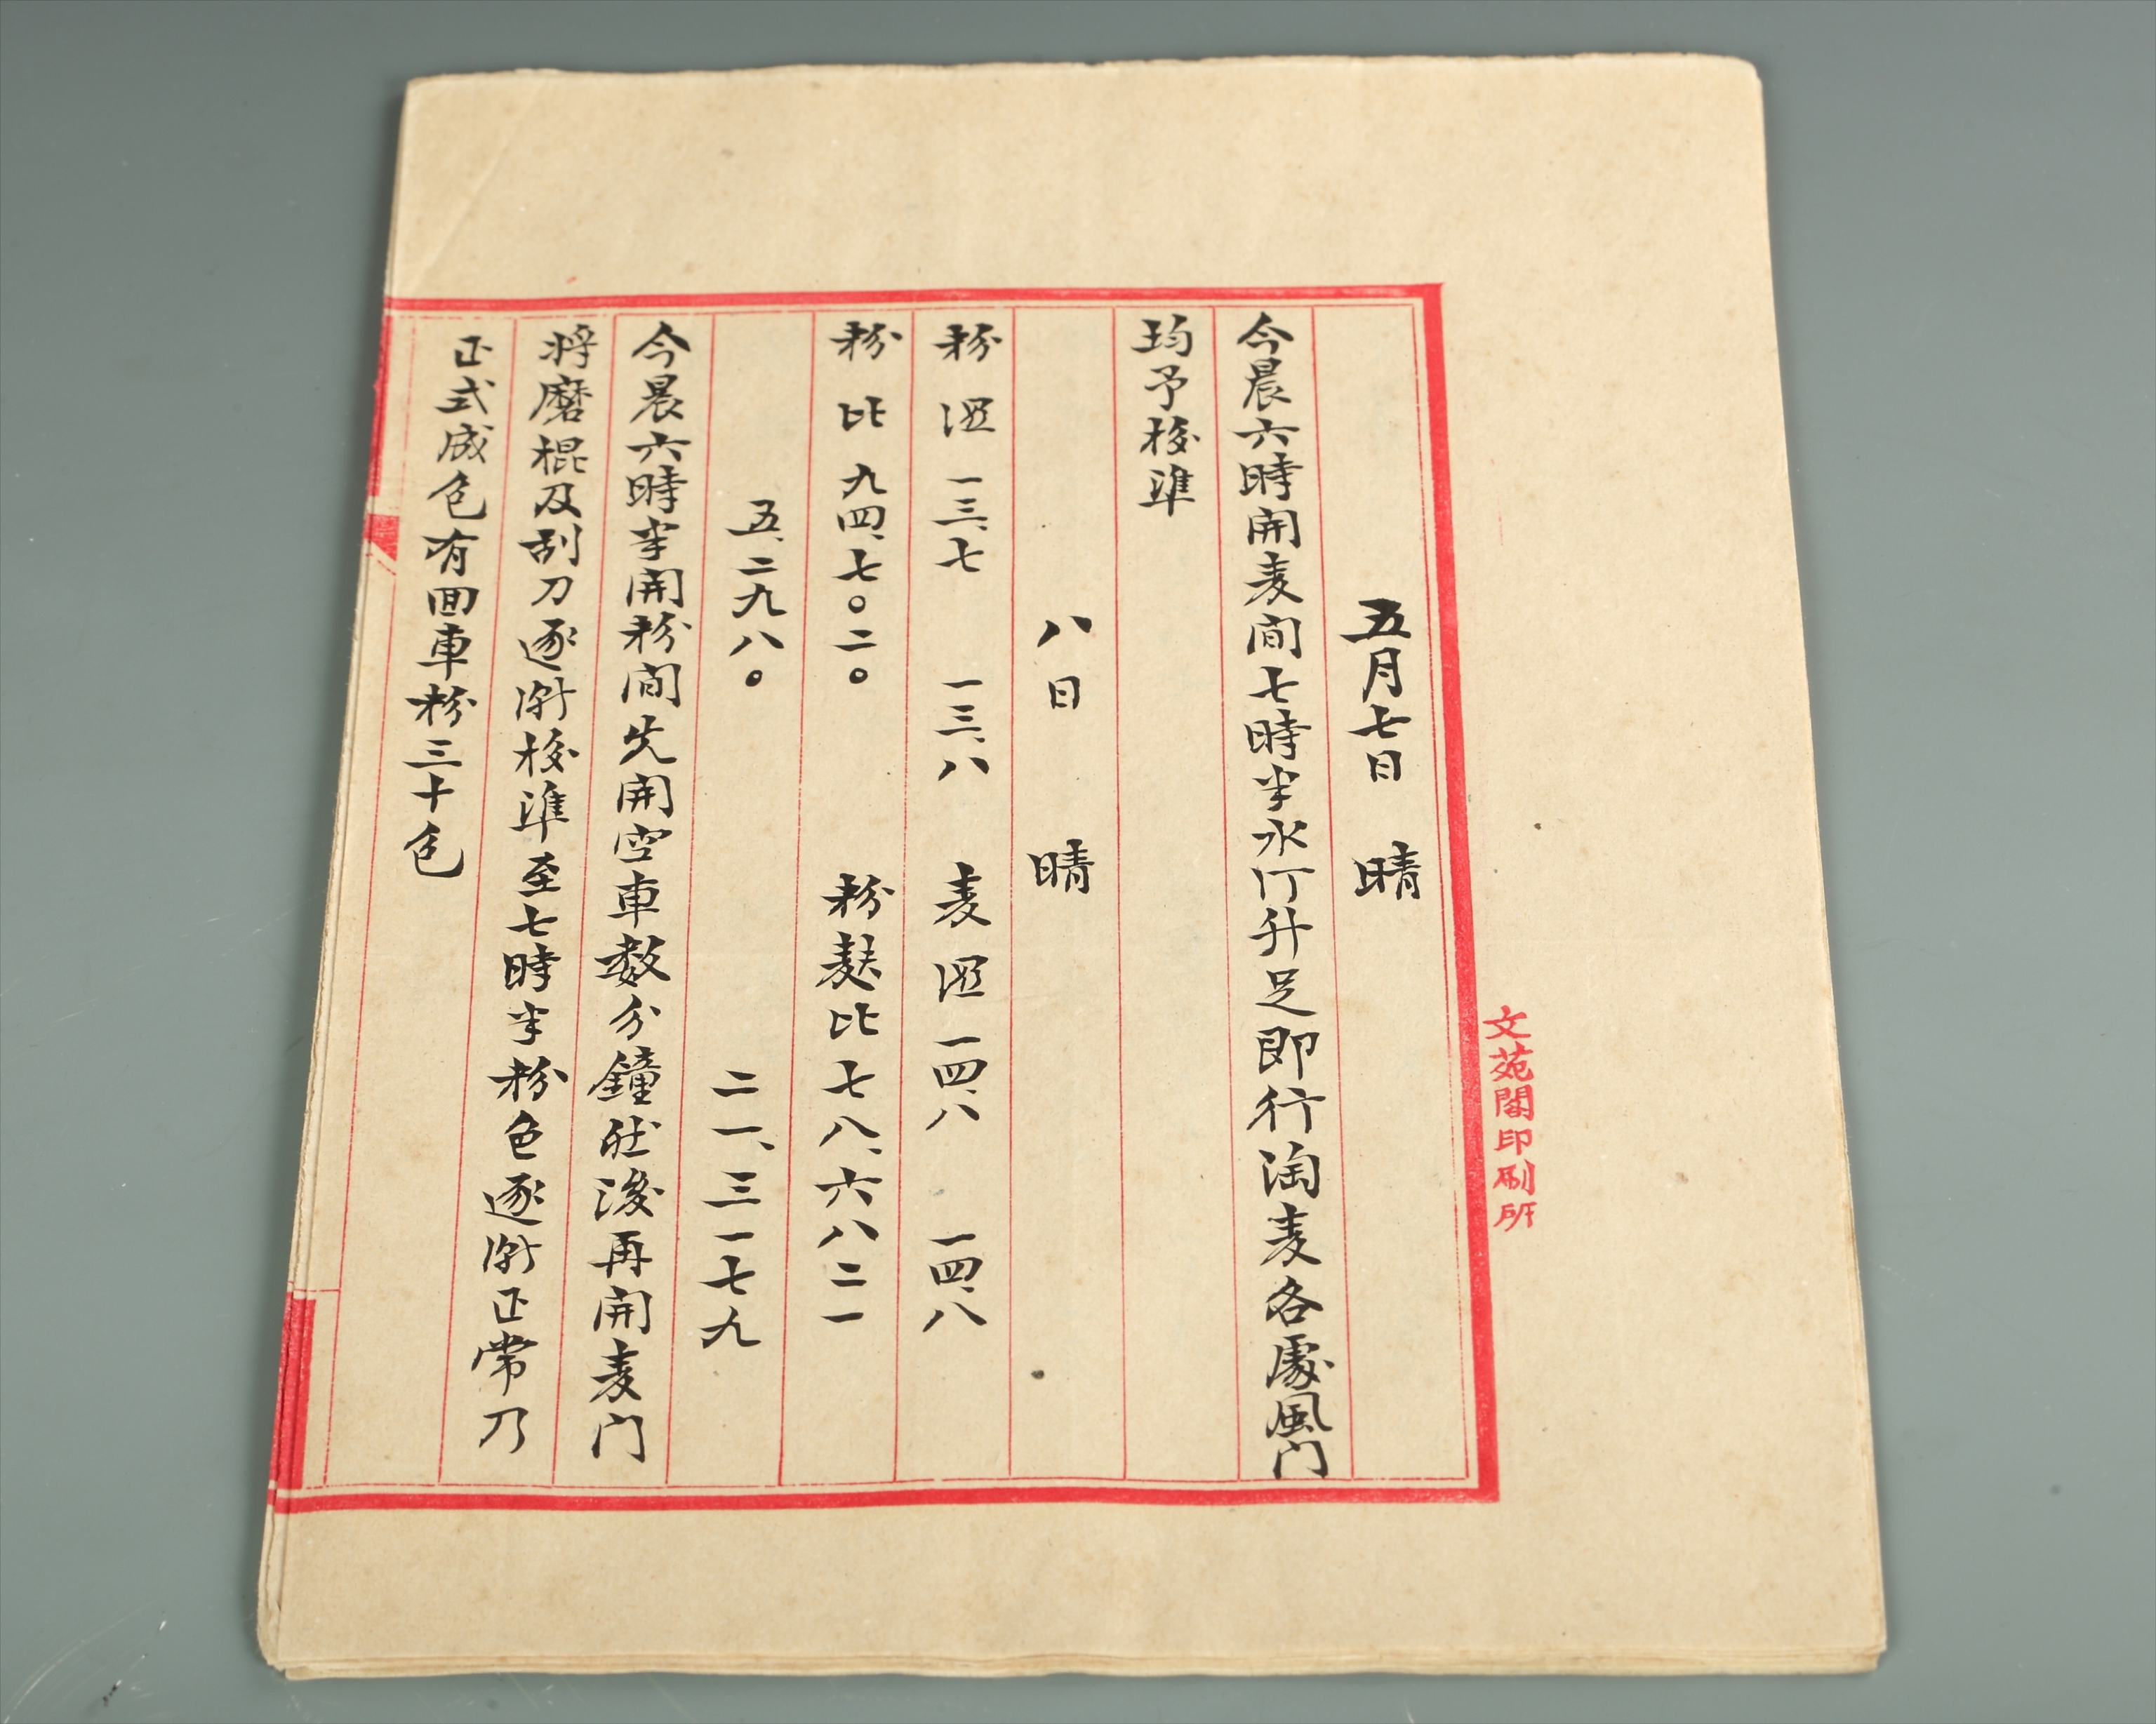 五月七日 晴
今晨六時開麦間七時半水汀升足即行淘麦各處風门
均予校準
八日 晴
粉湿 一三、七 一三、八 麦湿 一四、八 一四、八
粉比 九四、七〇二〇 粉麸比 七八、六八二一
五、二九八〇 二一、三一七九
今晨六時半開粉間先開空車数分鐘然後再開麦门
將磨棍及刮刀逐漸校準至七時半粉色逐漸正常乃
正式成包有回車粉三十包
文苑閣印刷所